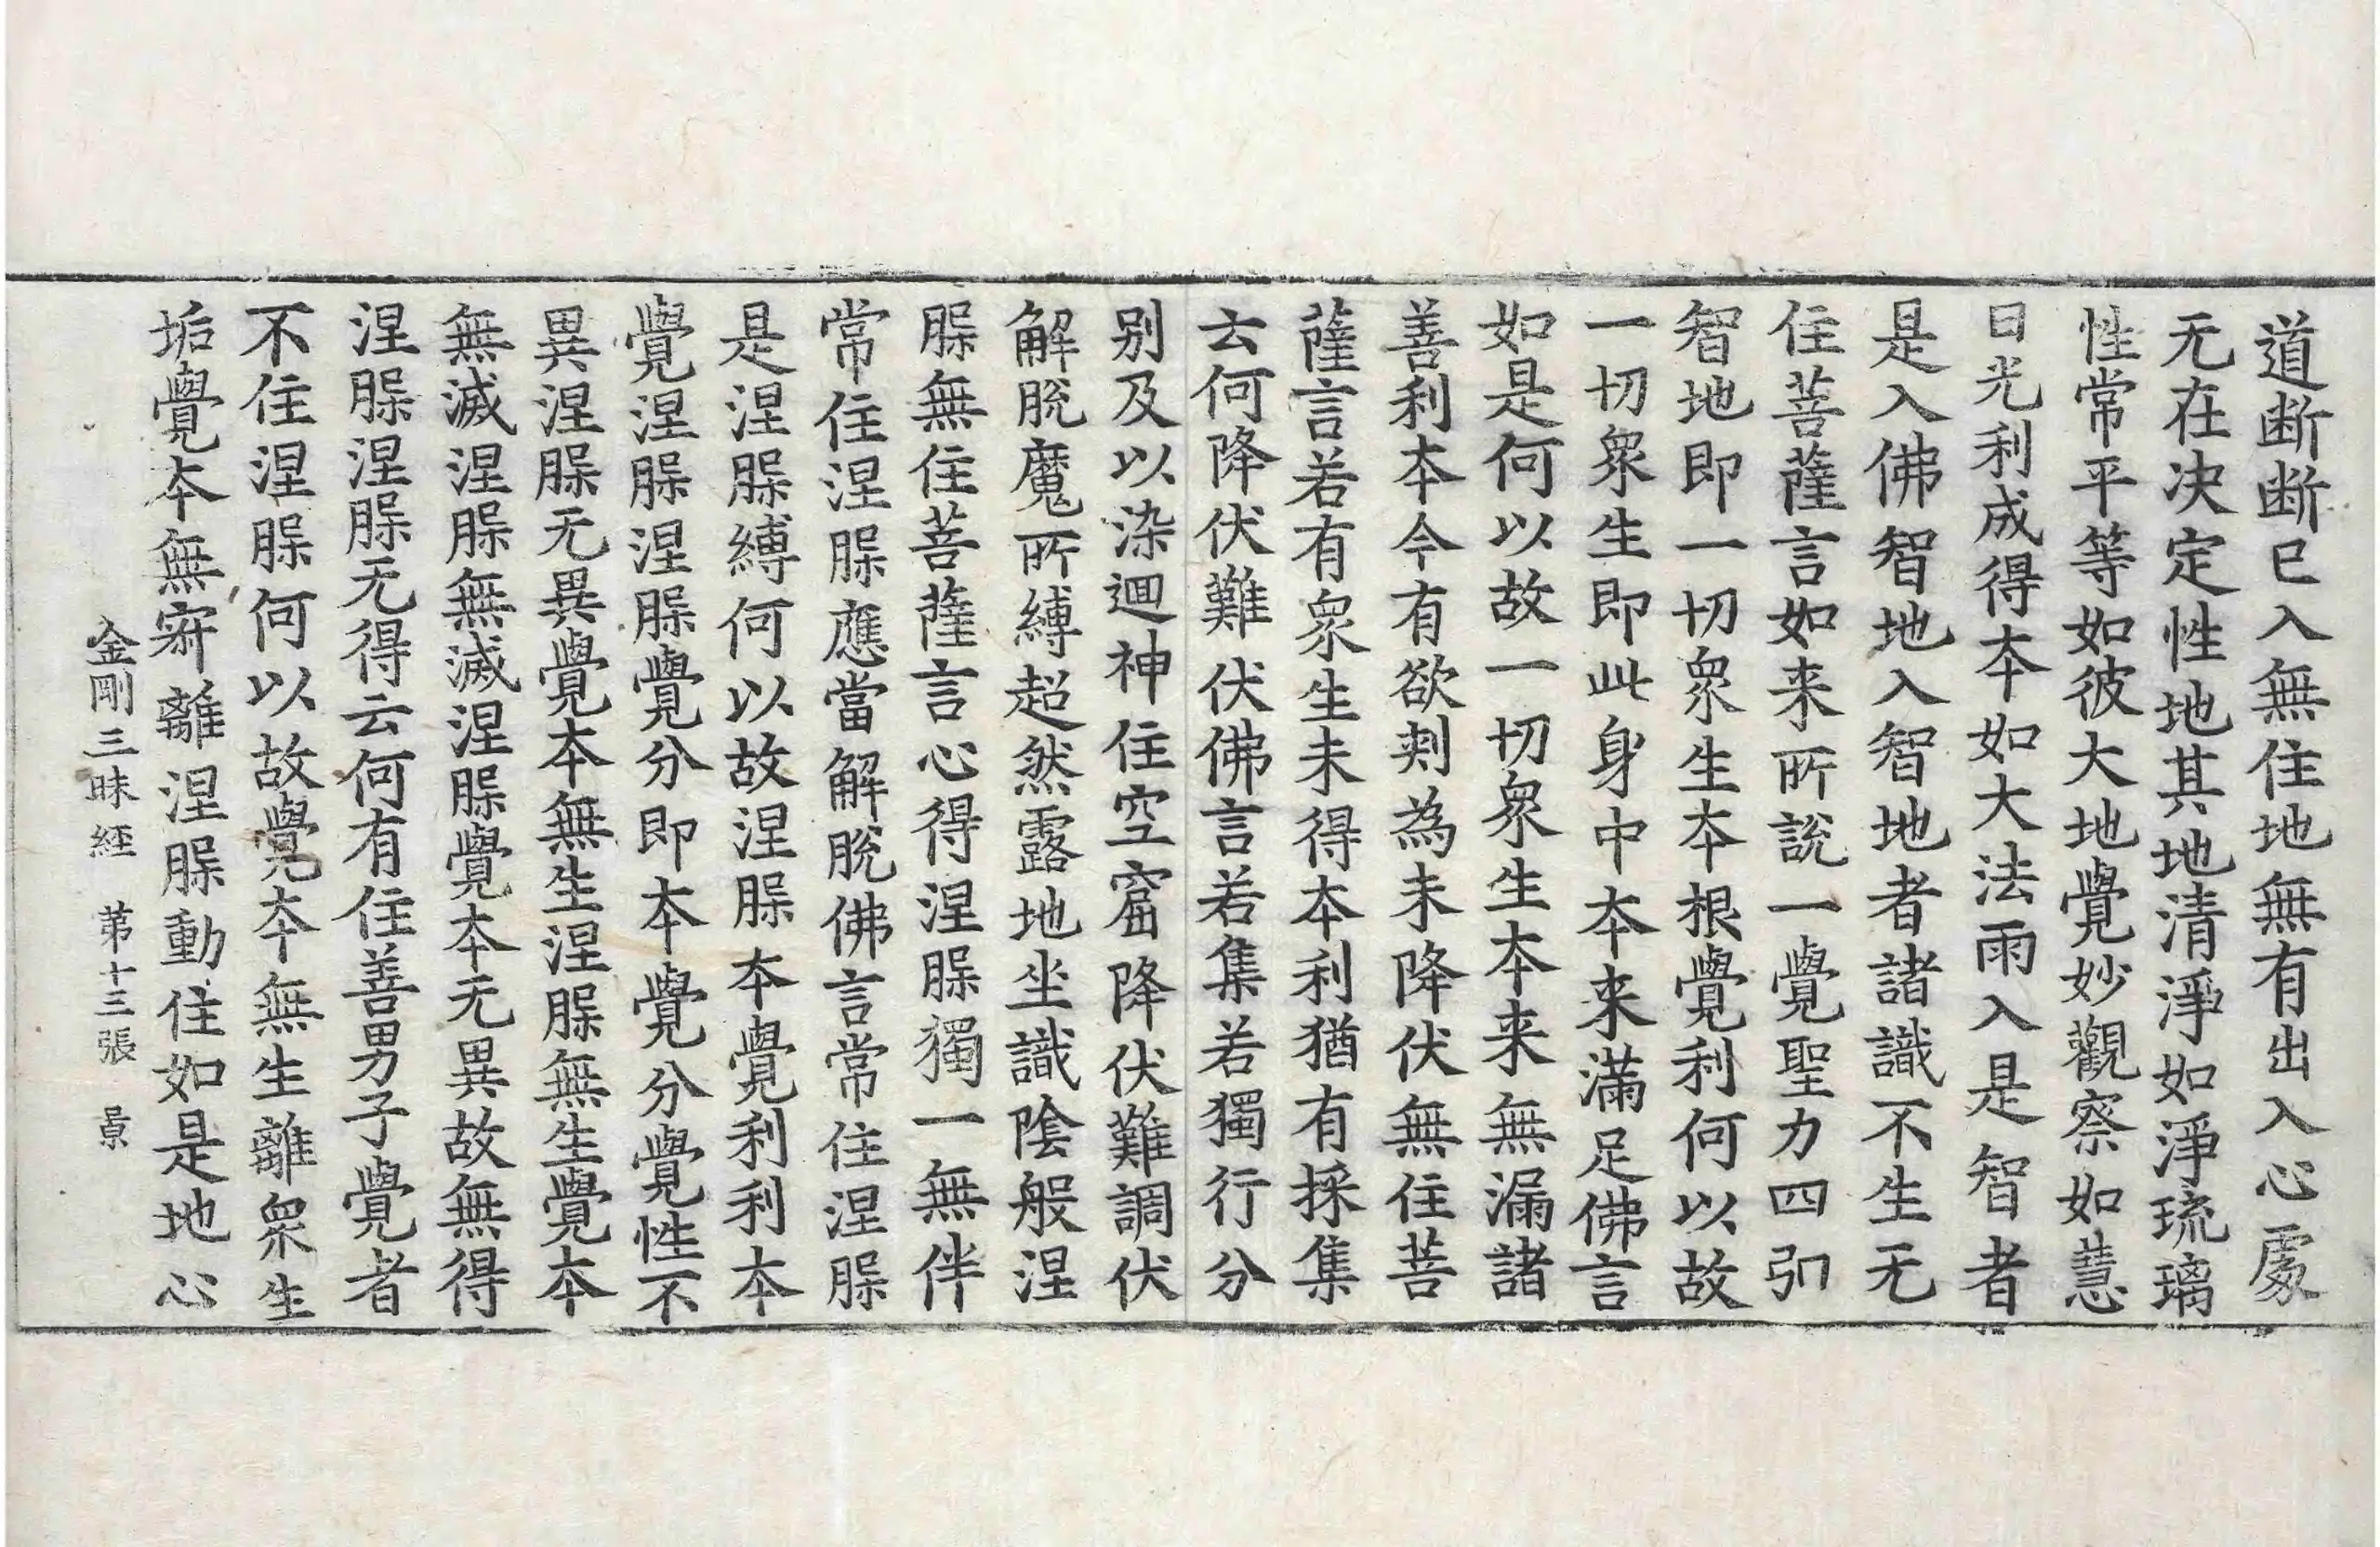 道断断已入無住地無有出入心處
无在决定性地其地清淨如淨琉璃
性常平等如彼大地覺妙觀察如慧
日光利成得夲如大法雨入是智者
是入佛智地入智地者諸識不生无
住菩薩言如来所說一覺聖力四弘
智地即一切衆生夲根覺利何以故
一切衆生即此身中夲来滿足佛言
如是何以故一切衆生夲来無漏諸
善利夲今有欲刺為未降伏無住菩
薩言若有衆生未得夲利猶有採集
云何降伏難伏佛言若集若獨行分
别及以染迴神住空窟降伏難調伏
解脫魔所縛超然露地坐識陰般涅
腂無住菩薩言心得涅腂獨一無伴
常住涅腂應當解脫佛言常住涅腂
是涅腂縛何以故涅腂夲覺利利夲
覺涅腂涅腂覺分即夲覺分覺性不
異涅腂无異覺夲無生涅腂無生覺夲
無滅涅腂無滅涅腂覺夲无異故無得
涅腂涅腂无得云何有住善男子覺者
不住涅腂何以故覺夲無生離衆生
垢覺夲無㝛離涅腂動住如是地心
金剛三昧經 苐十三張 景